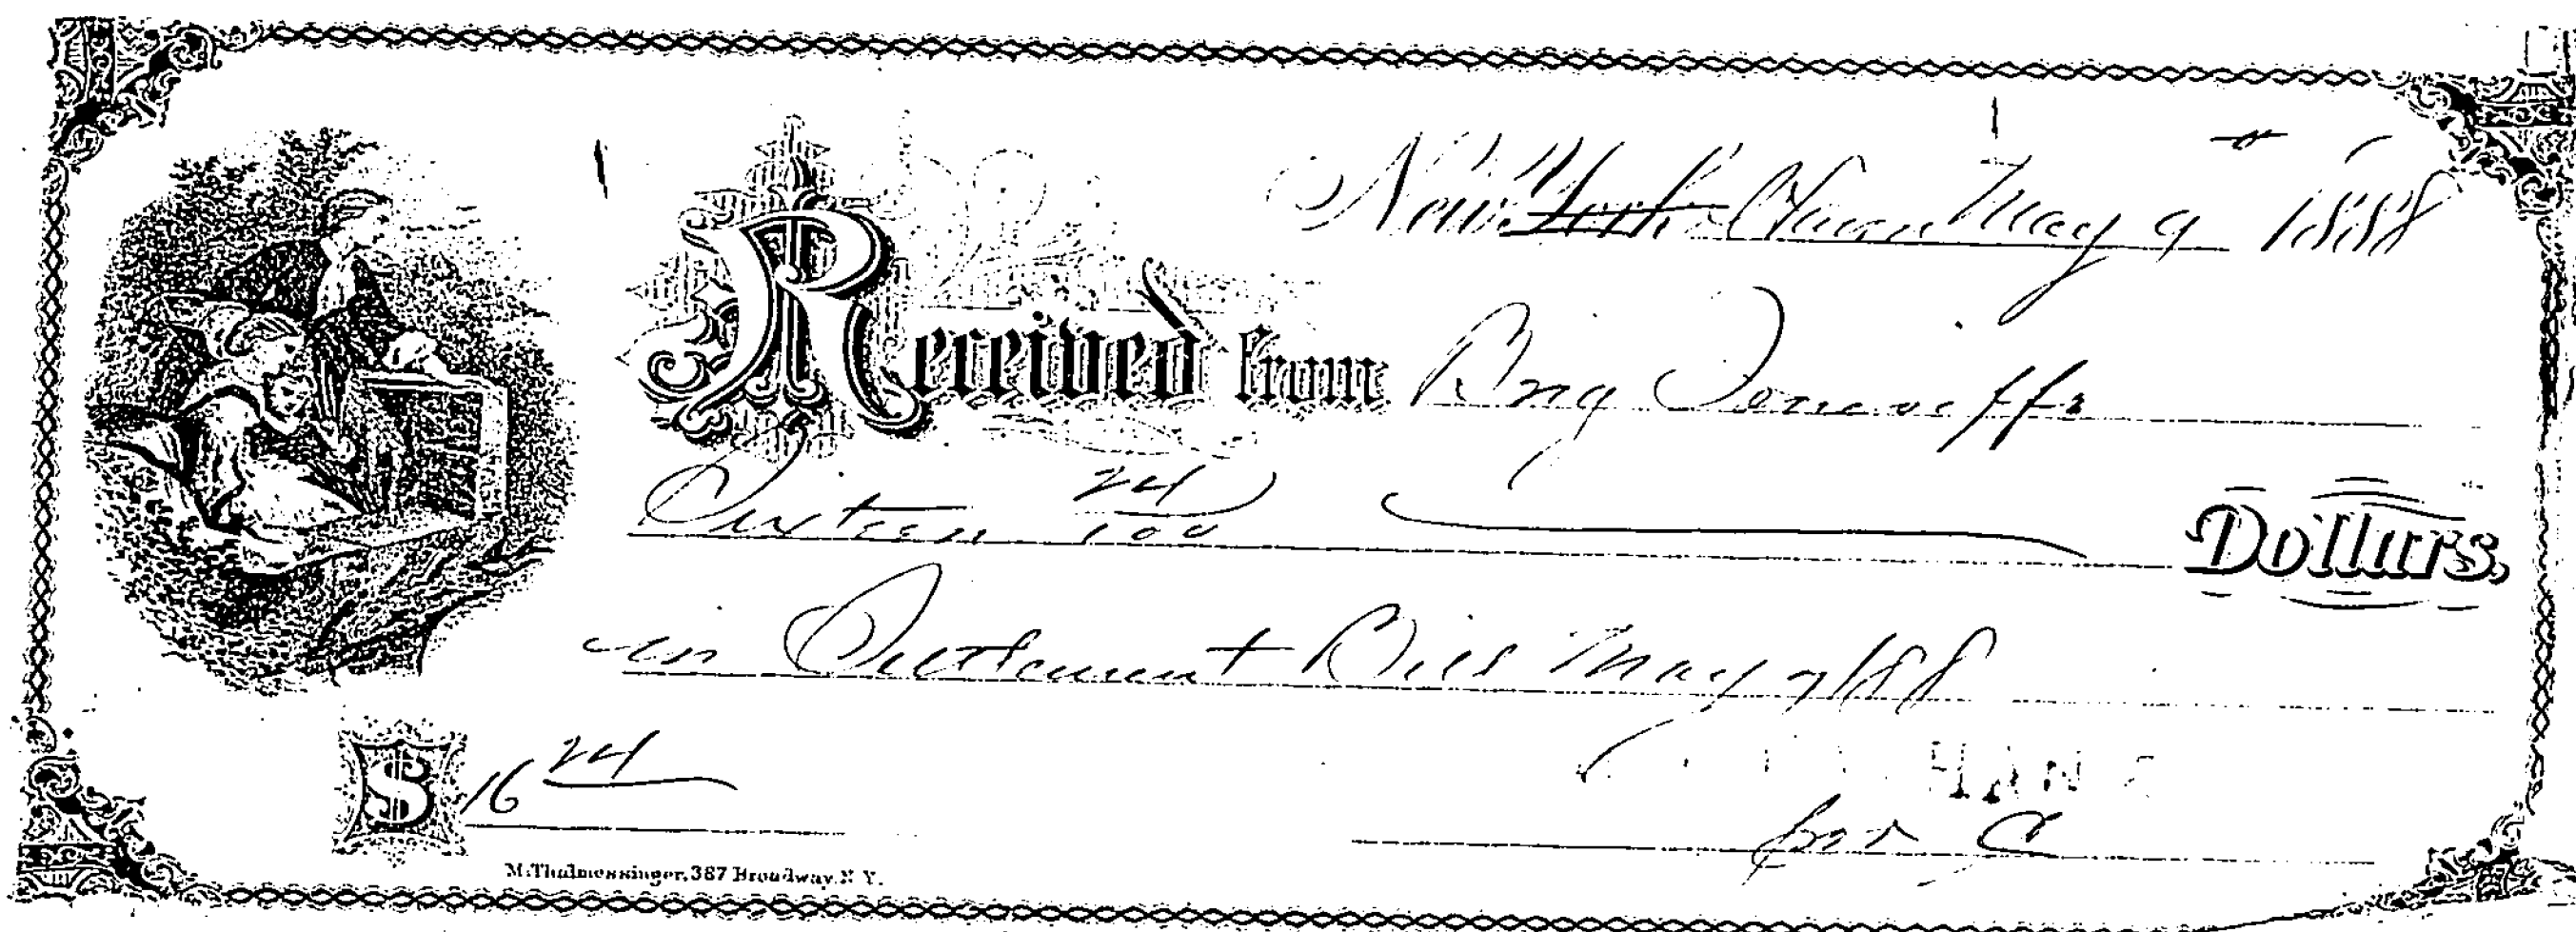 New York Haven May 9 1888
Received from Brig
Sixteen 24/100 Dollars,
in Settlement Bill May 9/88
$ 16 24
for
M. Thalmessinger, 387 Broadway, N. Y.